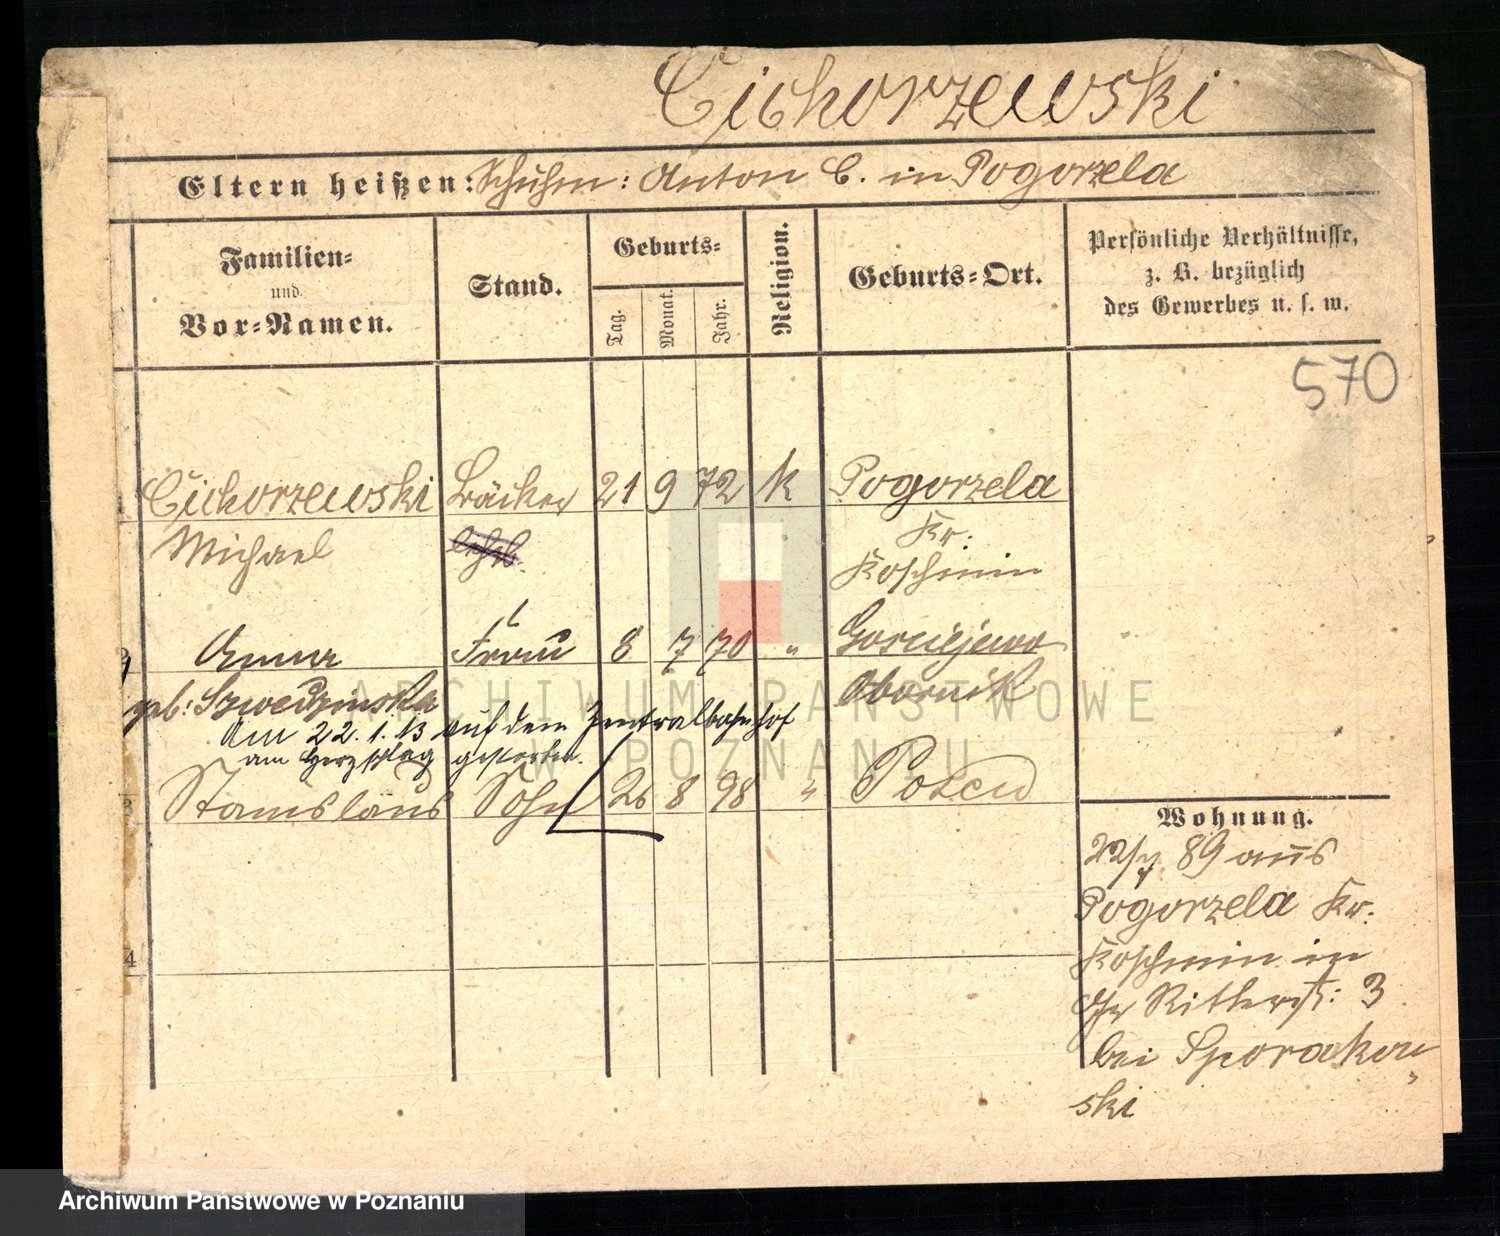 Cichorzewski
Eltern heißen: Schuhm: Anton C. in Pogorzela
Familien- und Vor-Namen.
Stand.
Geburts-
Tag.
Monat.
Jahr.
Religion.
Geburts-Ort.
Persönliche Verhältnisse,
z. B. bezüglich
des Gewerbes u. s. w.
570
Cichorzewski Bäcker 21 9 72 k Pogorzela
Michael Kr:
Koschmin
Anna Frau 8 7 70 " Gosciejewo
geb: Szwedzinska Obornik
Am 22.1.13 auf dem Zentralbahnhof
am Herzschlag gestorben.
3 Stanislaus Sohn 26 8 98 " Posen
Wohnung.
22/7. 89 aus
Pogorzela Kr:
4
Koschmin in
Ritterst: 3
bei Sporakow
ski
ARCHIWUM PAŃSTWOWE
W POZNANIU
Archiwum Państwowe w Poznaniu